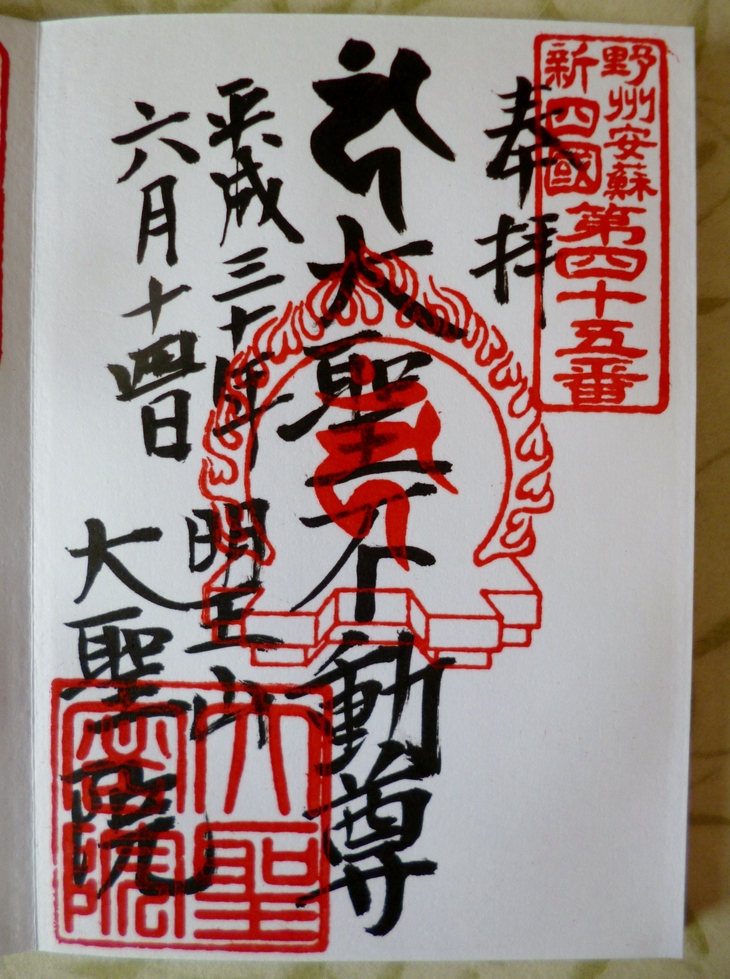 野州安蘇
新四國
第四十五番
奉拝
大聖不動尊
平成三十年
六月十四日
明王山
大聖院
大聖
院